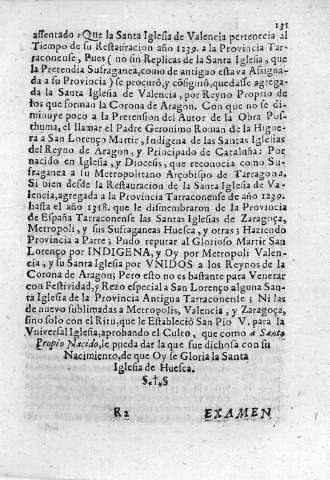 131
assentado ; Que la Santa Iglesia de Valencia pertenecia al
Tiempo de su Restauracion año 1239. a la Provincia Tar-
raconense, Pues (no sin Replicas de la Santa Iglesia, que
la Pretendia Sufraganea, como de antiguo estava Assigna-
da a su Provincia) se procurò, y cōsiguiò, quedasse agrega-
da la Santa Iglesia de Valencia, por Reyno Proprio de
los que forman la Corona de Aragon. Con que no se di-
minuye poco a la Pretension del Autor de la Obra Pos-
thuma, el llamar el Padre Geronimo Roman de la Higue-
ra a San Lorenço Martir, Indigena de las Santas Iglesias
del Reyno de Aragon, y Principado de Cataluña: Por
nacido en Iglesia, y Diocesis, que reconocia como Su-
fraganea a su Metropolitano Arçobispo de Tarragona.
Si bien desde la Restauracion de la Santa Iglesia de Va-
lencia, agregada a la Provincia Tarraconense de año 1239.
hasta el año 1318. que le dismembraron de la Provincia
de España Tarraconense las Santas Iglesias de Zaragoça,
Metropoli, y sus Sufraganeas Huesca, y otras; Haziendo
Provincia a Parte; Pudo reputar al Glorioso Martir San
Lorenço por INDIGENA, y Oy por Metropoli Valen-
cia, y su Santa Iglesia por VNIDOS a los Reynos de la
Corona de Aragon; Pero esto no es bastante para Venerar
con Festividad, y Rezo especial a San Lorenço alguna San-
ta Iglesia de la Provincia Antigua Tarraconense; Ni las
de nuevo sublimadas a Metropolis, Valencia, y Zaragoça,
sino solo con el Ritu, que le Estableciò San Pio V. para la
Vniversal Iglesia, aprobando el Culto, que como a Santo
Propio Nacido, le pueda dar la que fue dichosa con su
Nacimiento, de que Oy se Gloria la Santa
Iglesia de Huesca.
§.†.§
R2 EXAMEN